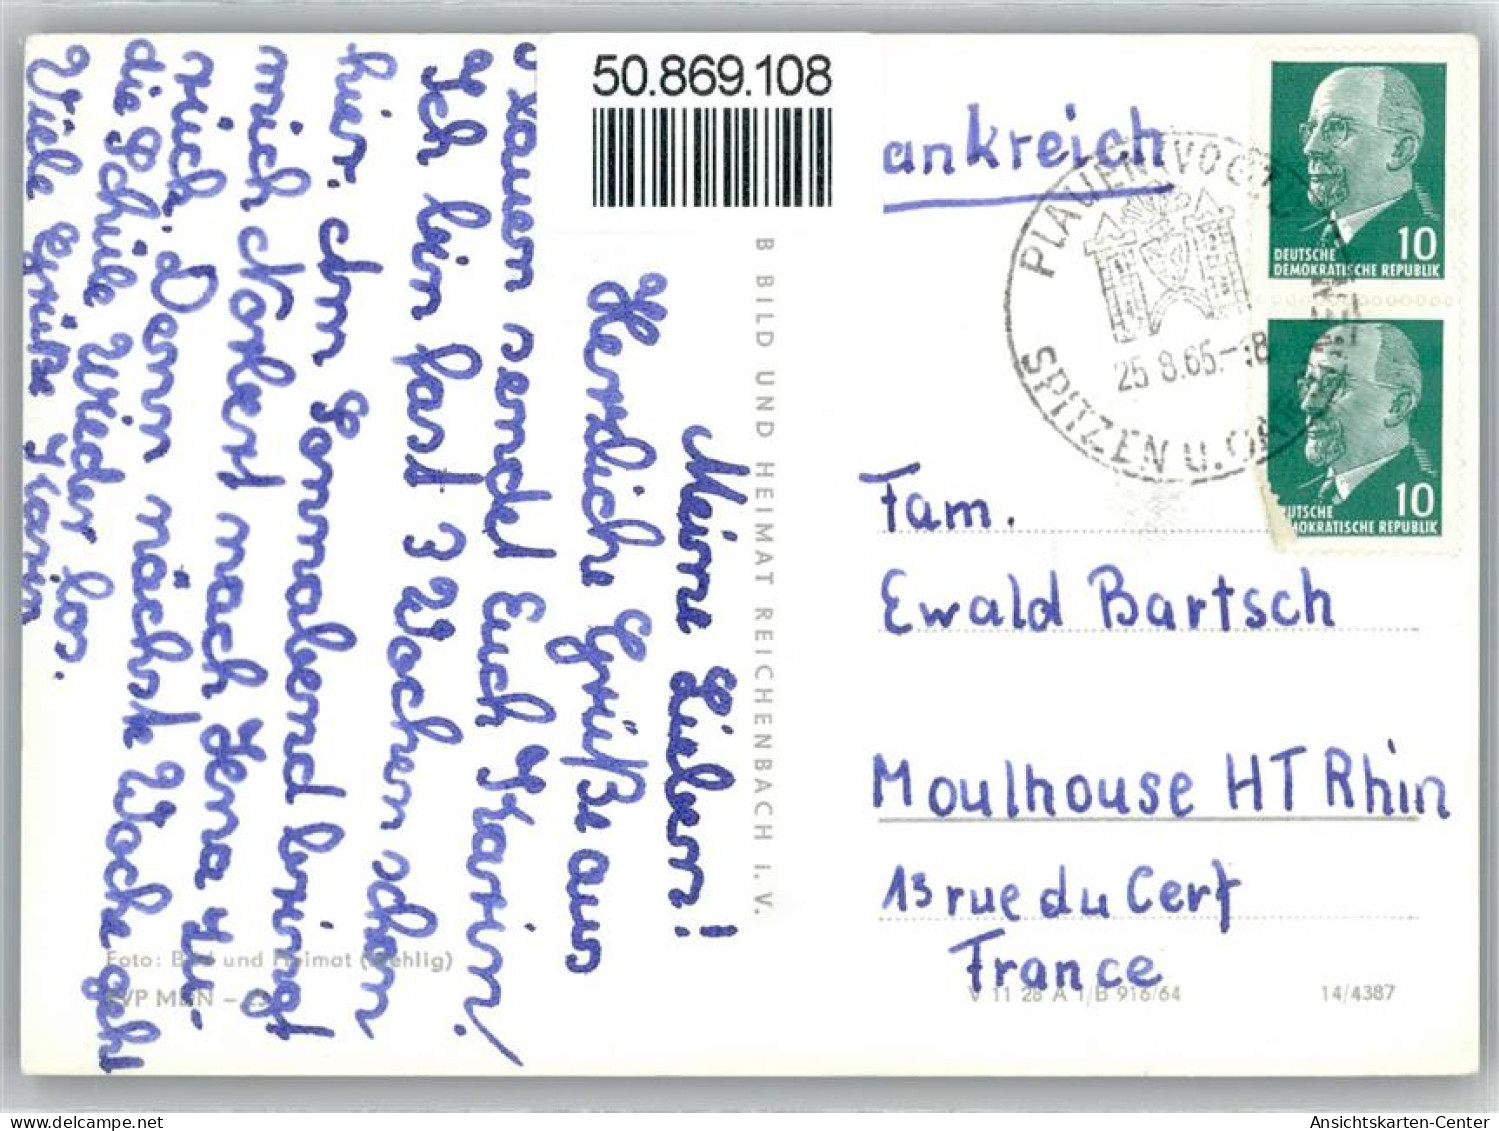 50.869.108
Meine Lieben!
Herzliche Grüße aus
Plauen sendet Euch Karin!
Ich bin fast 3 Wochen schon
hier. Am Sonnabend bringt
mich Norbert nach Jena zu-
rück. Denn nächste Woche geht
die Schule wieder los.
Viele Grüße Karin
B BILD UND HEIMAT REICHENBACH I. V.
Foto: Bild und Heimat
EVP MDN – 25
ankreich
PLAUEN (VOGTL
SPITZEN U.
25.8.65.-18
10
DEUTSCHE
DEMOKRATISCHE REPUBLIK
10
UTSCHE
MOKRATISCHE REPUBLIK
Fam.
Ewald Bartsch
Moulhouse HT Rhin
13 rue du Cerf
France
V 11 28 A 1/B 916/64
14/4387
Ansichtskarten-Center